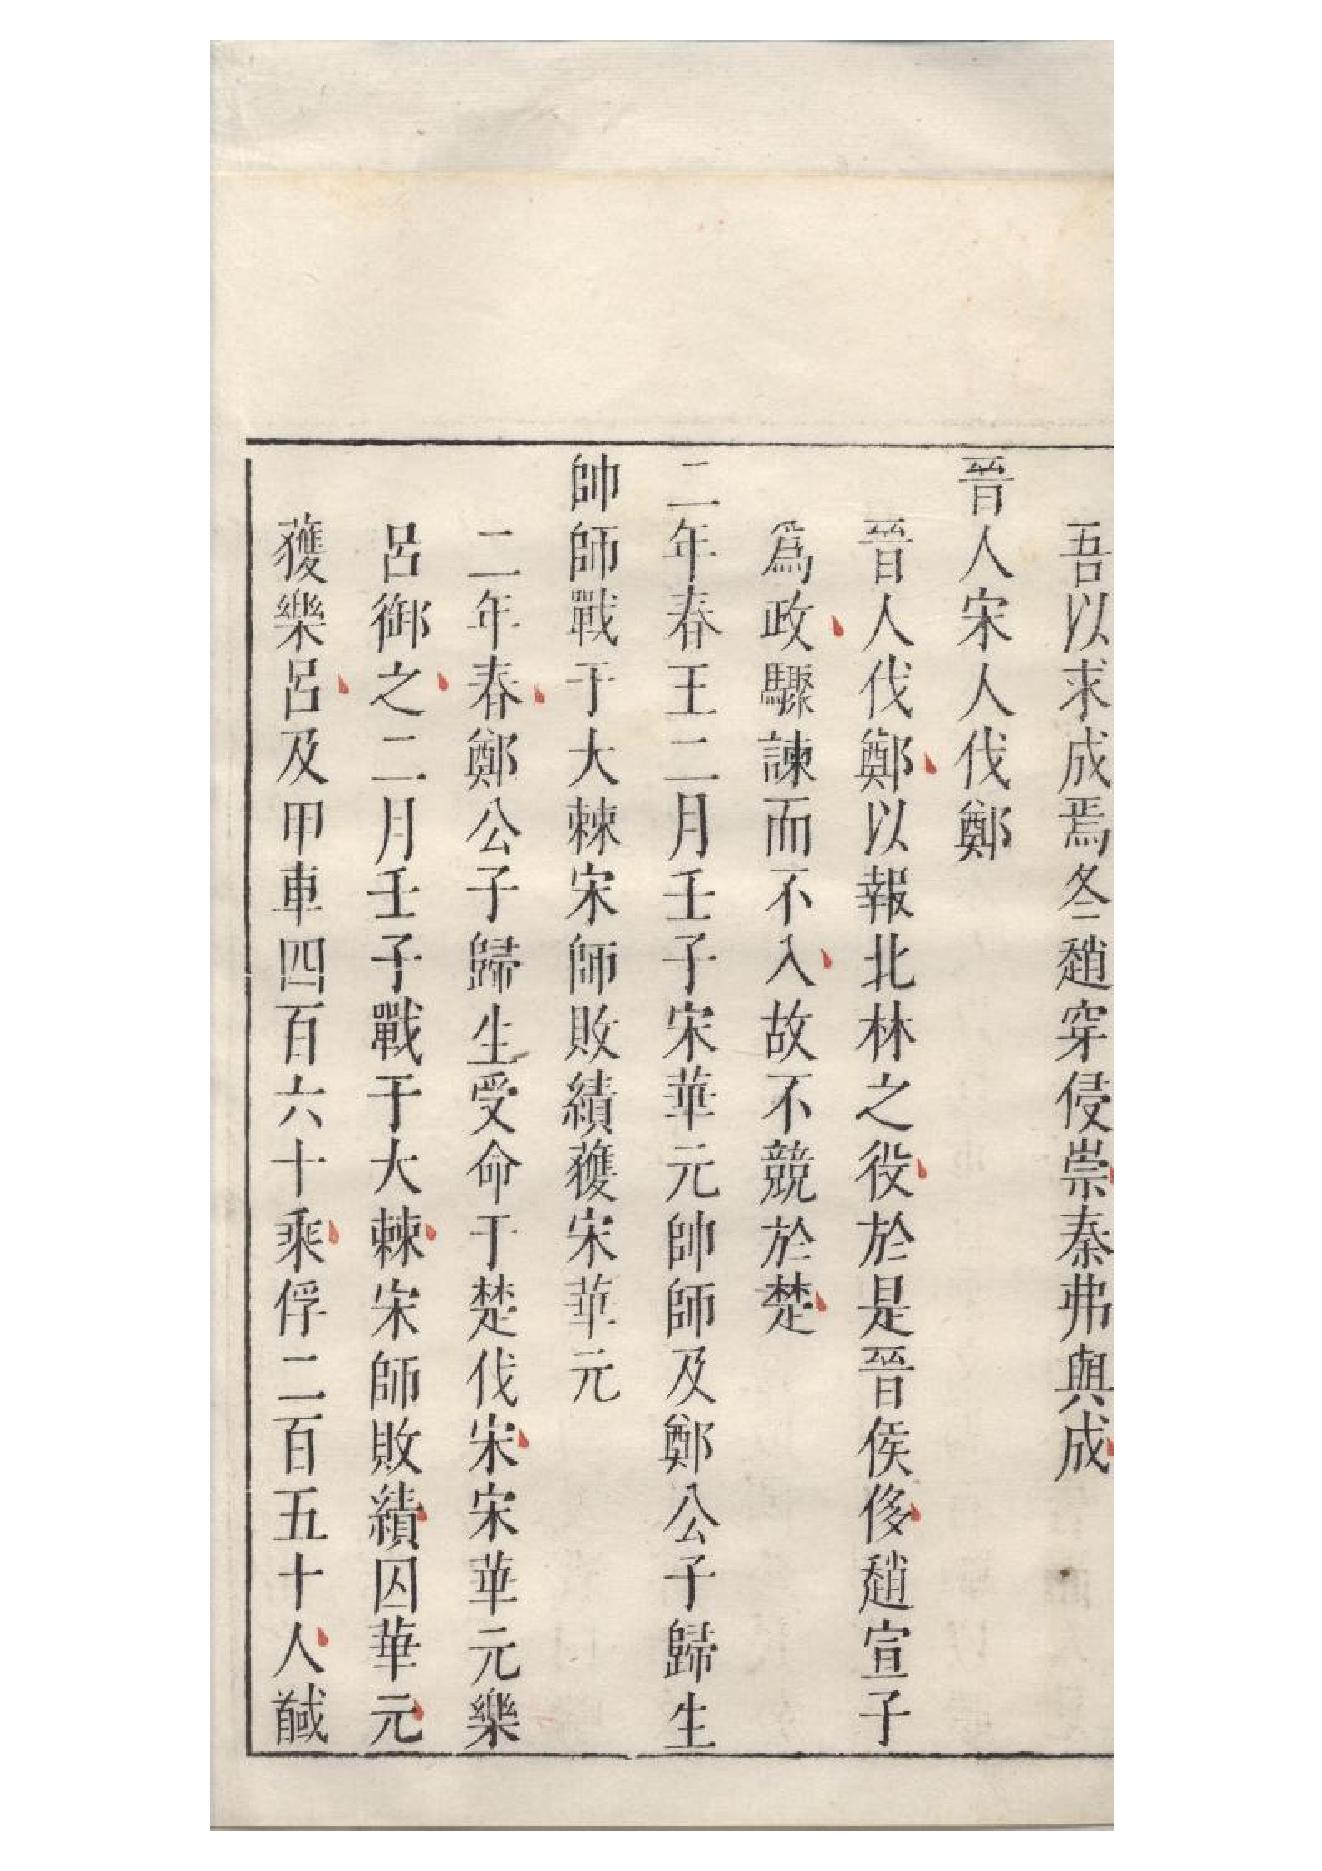 吾以求成焉冬趙穿侵崇秦弗與成
晉人宋人伐鄭
晉人伐鄭以報北林之役於是晉侯侈趙宣子
爲政驟諫而不入故不競於楚
二年春王二月壬子宋華元帥師及鄭公子歸生
帥師戰于大棘宋師敗績獲宋華元
二年春鄭公子歸生受命于楚伐宋宋華元樂
呂御之二月壬子戰于大棘宋師敗績囚華元
獲樂呂及甲車四百六十乘俘二百五十人馘